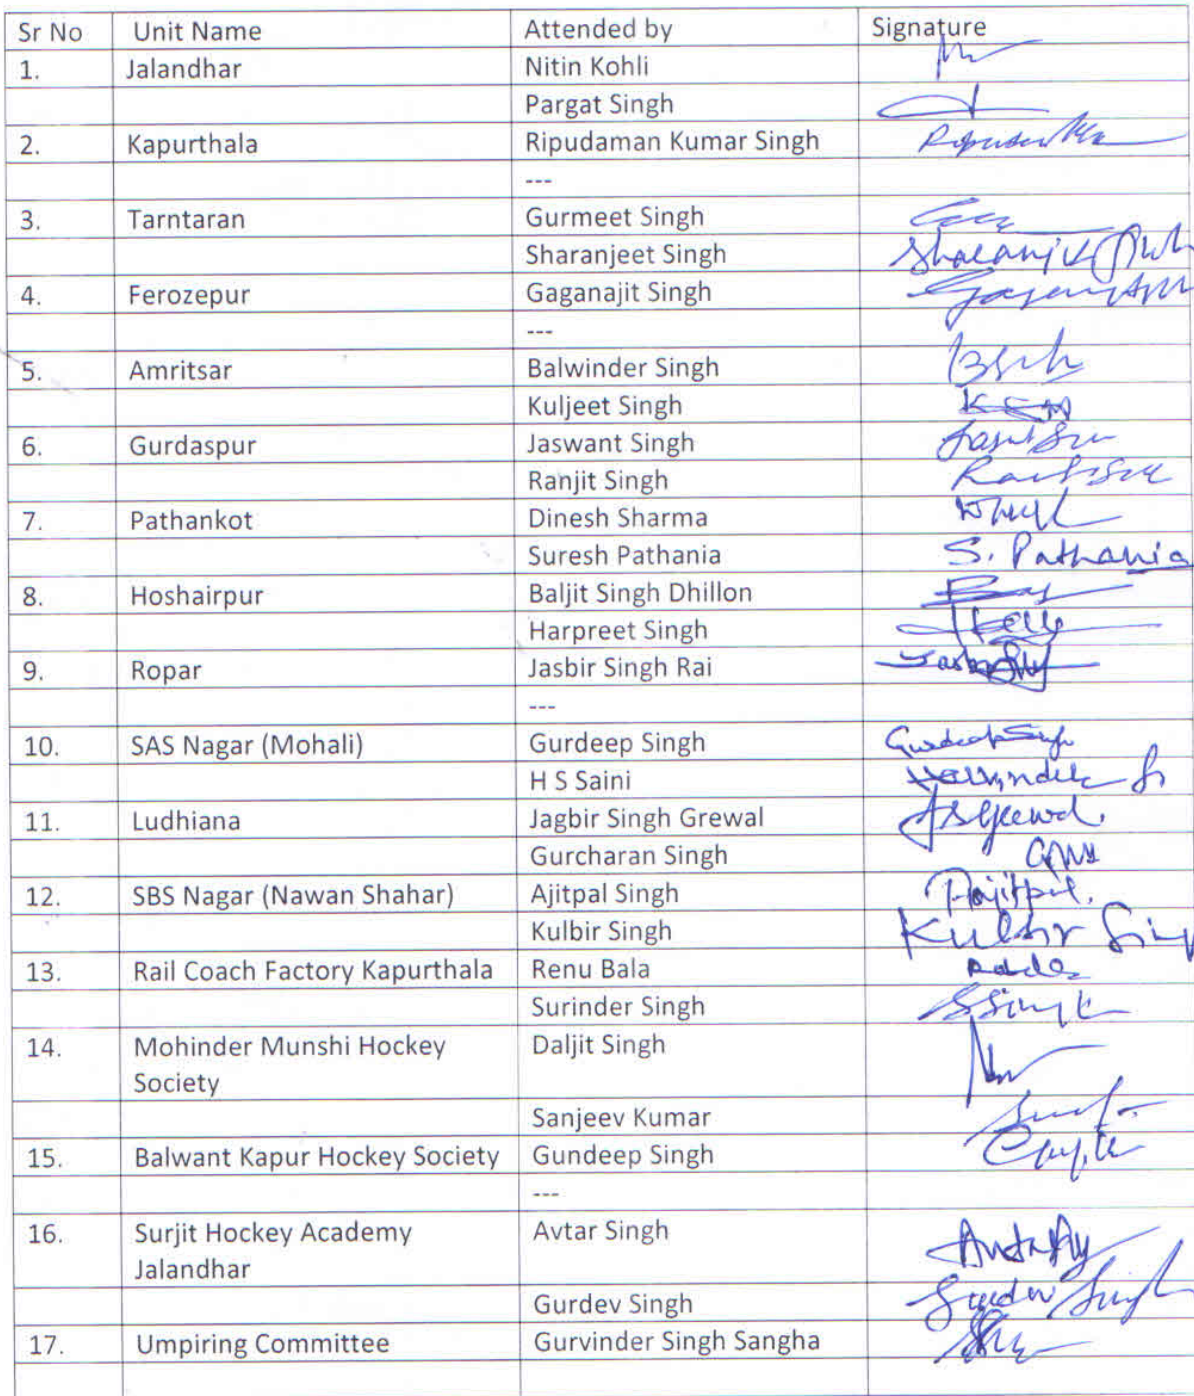 Sr No Unit Name Attended by Signature
1. Jalandhar Nitin Kohli
Pargat Singh
2. Kapurthala Ripudaman Kumar Singh
---
3. Tarntaran Gurmeet Singh
Sharanjeet Singh
4. Ferozepur Gaganajit Singh
---
5. Amritsar Balwinder Singh
Kuljeet Singh
6. Gurdaspur Jaswant Singh
Ranjit Singh
7. Pathankot Dinesh Sharma
Suresh Pathania S. Pathania
8. Hoshairpur Baljit Singh Dhillon
Harpreet Singh
9. Ropar Jasbir Singh Rai
---
10. SAS Nagar (Mohali) Gurdeep Singh
H S Saini
11. Ludhiana Jagbir Singh Grewal
Gurcharan Singh
12. SBS Nagar (Nawan Shahar) Ajitpal Singh
Kulbir Singh Kulbir Sing
13. Rail Coach Factory Kapurthala Renu Bala
Surinder Singh
14. Mohinder Munshi Hockey Daljit Singh
Society
Sanjeev Kumar
15. Balwant Kapur Hockey Society Gundeep Singh
---
16. Surjit Hockey Academy Avtar Singh
Jalandhar
Gurdev Singh
17. Umpiring Committee Gurvinder Singh Sangha